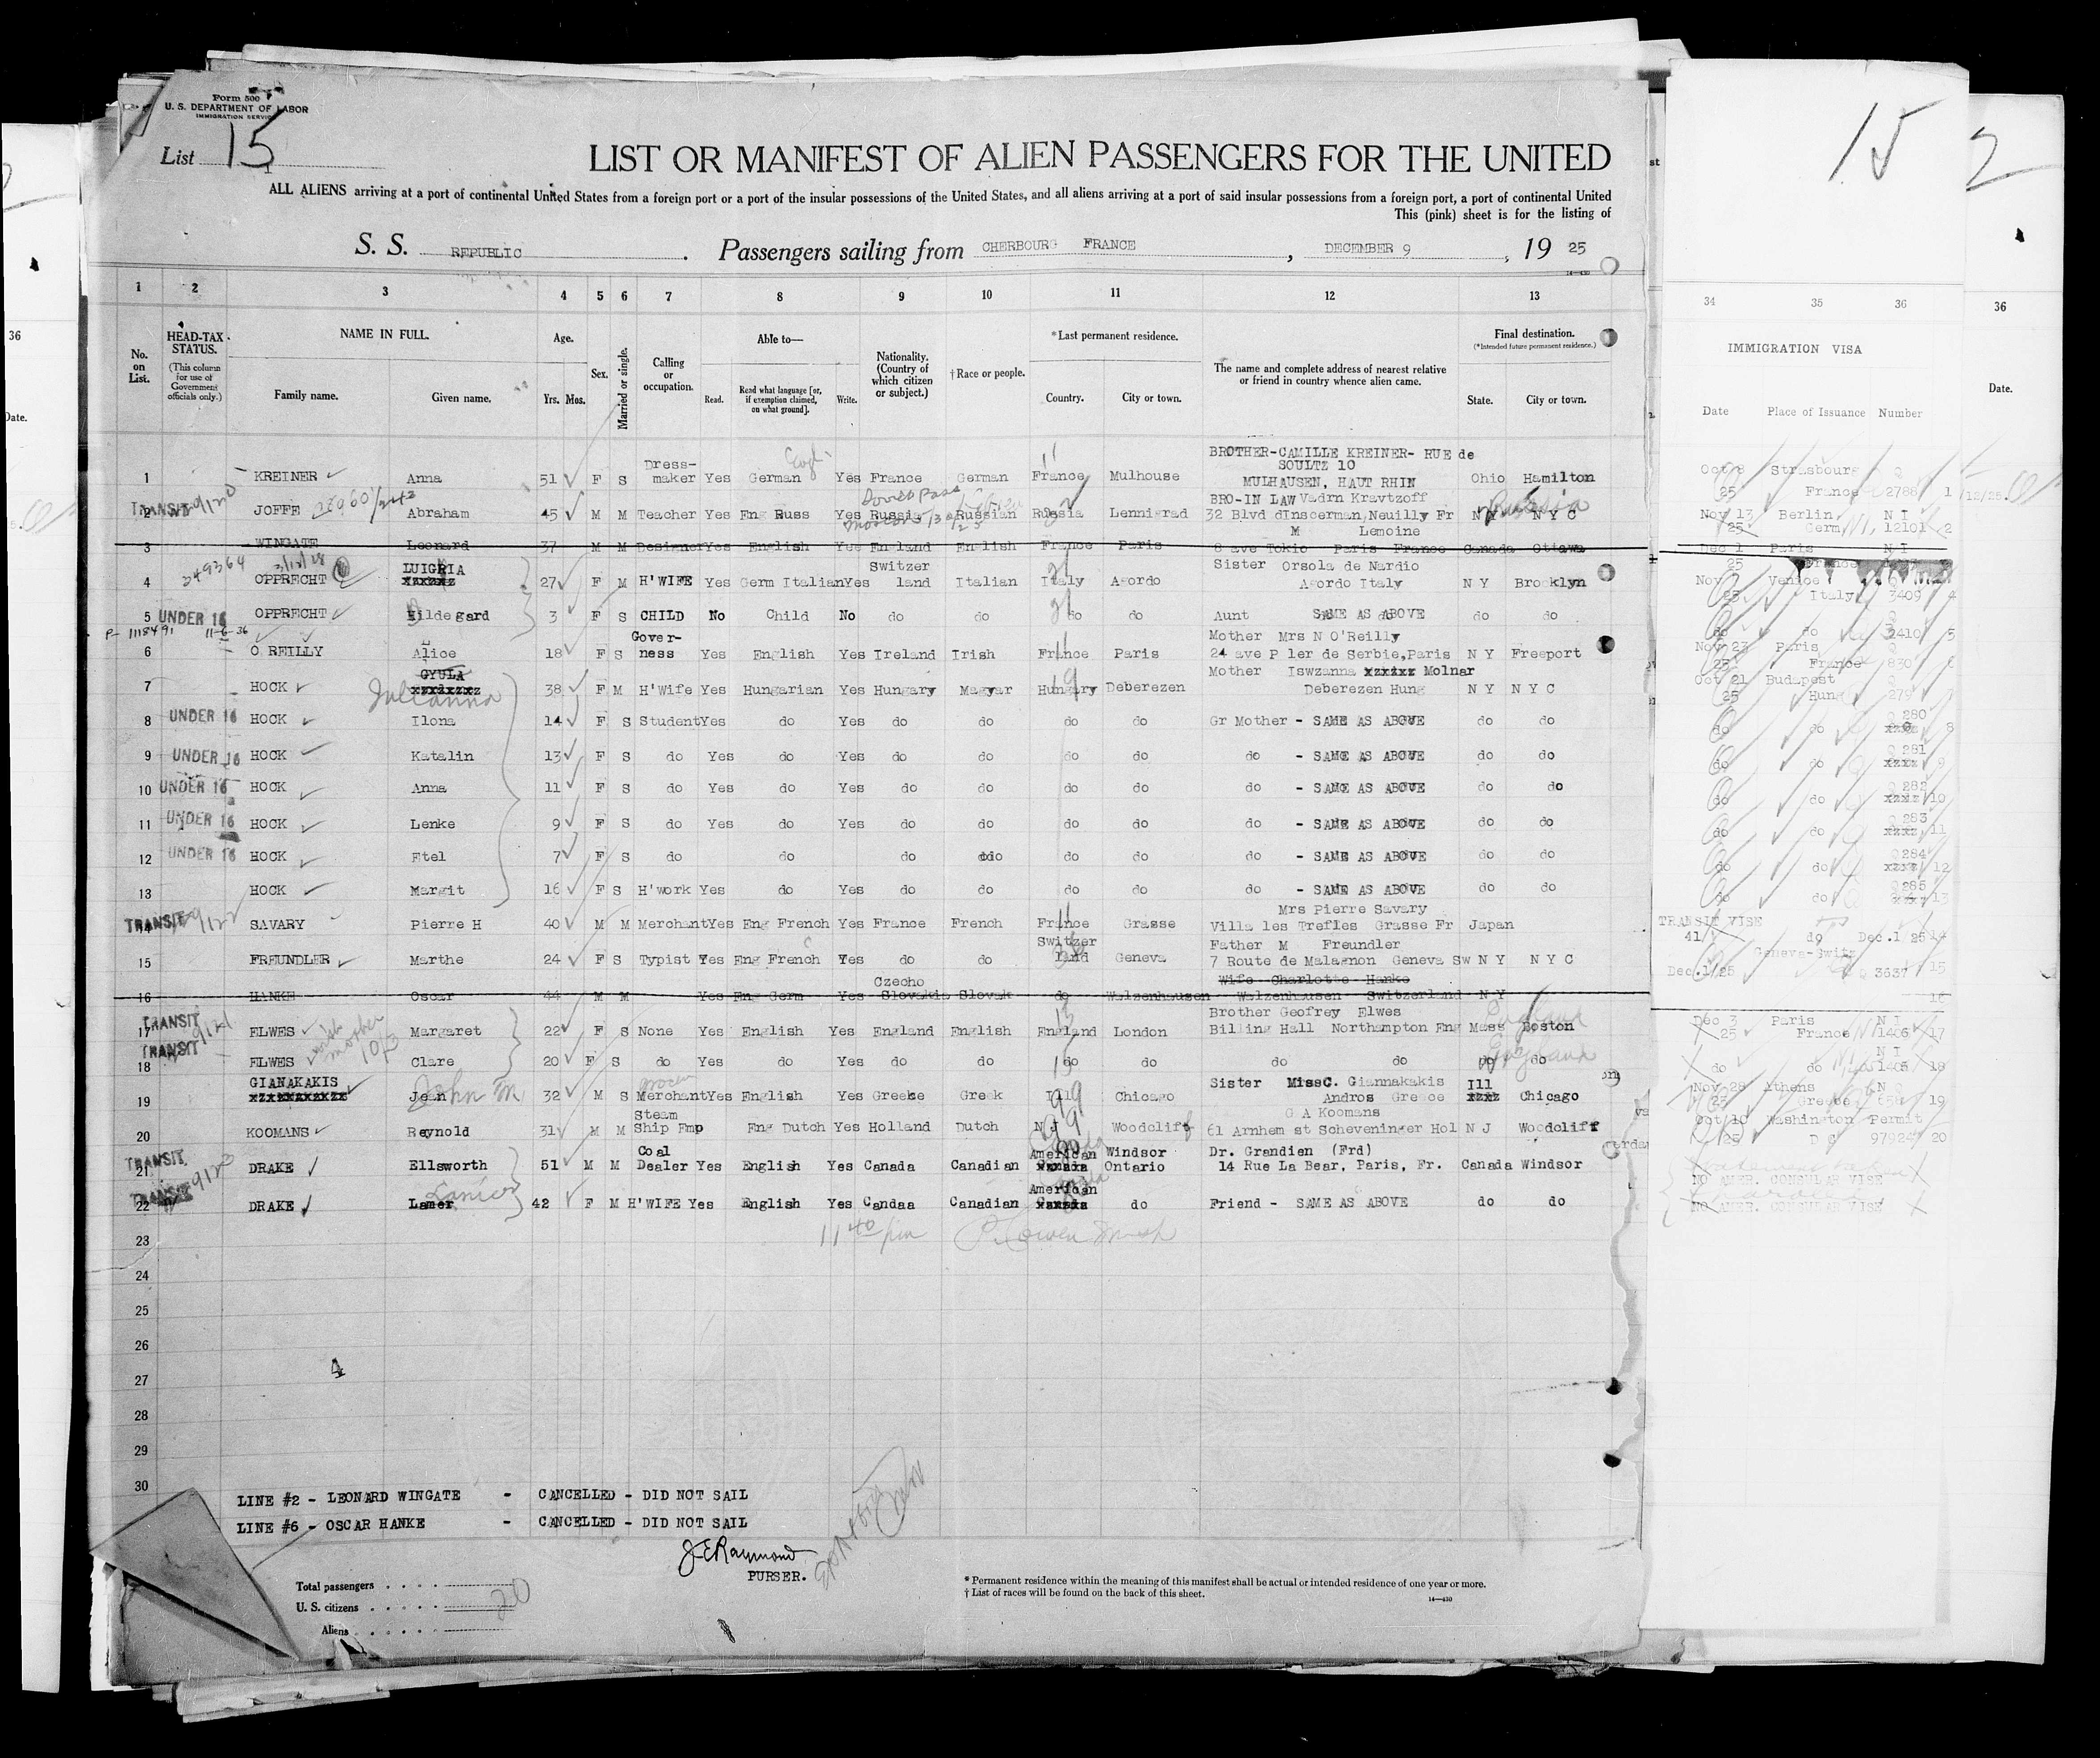 Form 500
U. S. DEPARTMENT OF LABOR
IMMIGRATION SERVICE
List 15
15
2
LIST OR MANIFEST OF ALIEN PASSENGERS FOR THE UNITED
ALL ALIENS arriving at a port of continental United States from a foreign port or a port of the insular possessions of the United States, and all aliens arriving at a port of said insular possessions from a foreign port, a port of continental United
This (pink) sheet is for the listing of
S. S. REPUBLIC. Passengers sailing from CHERBOURG FRANCE, DECEMBER 9, 19 25
1 2 3 4 5 6 7 8 9 10 11 12 13 34 35 36
No. on List.
HEAD-TAX STATUS.
(This column for use of Government officials only.)
NAME IN FULL.
Family name. Given name.
Age.
Yrs. Mos.
Sex.
Married or single.
Calling or occupation.
Able to—
Read. Read what language [or, if exemption claimed, on what ground]. Write.
Nationality. (Country of which citizen or subject.)
†Race or people.
*Last permanent residence.
Country. City or town.
The name and complete address of nearest relative or friend in country whence alien came.
Final destination.
(*Intended future permanent residence.)
State. City or town.
IMMIGRATION VISA
Date Place of Issuance Number
36
Date.
BROTHER-CAMILLE KREINER- RUE de
SOULTZ 10
1 KREINER Anna 51 F S Dress-maker Yes German Yes France German France Mulhouse MULHAUSEN, HAUT RHIN Ohio Hamilton Oct 8 25 Strasbourg France 2788 1
TRANSIT
BRO-IN LAW Vadrn Kravtzoff
2 JOFFE Abraham 45 M M Teacher Yes Eng Russ Yes Russia Russian Russia Lennigrad 32 Blvd dInscerman, Neuilly Fr N Y N Y C Nov 13 25 Berlin Germ N I 12101 2
M Lemoine
3 WINGATE Leonard 37 M M Designer Yes English Yes England English France Paris 8 ave Tokio Paris France Canada Ottawa Dec 1 25 Paris France N I
349364 3/12/28
4 OPPRECHT LUIGRIA xxxxxx 27 F M H'WIFE Yes Germ Italian Yes Switzerland Italian Italy Agordo Sister Orsola de Nardio Agordo Italy N Y Brooklyn Nov 25 Venice Italy 3409 4
5 UNDER 16 OPPRECHT Hildegard 3 F S CHILD No Child No do do do do Aunt SAME AS ABOVE do do do do 3410 5
P- 1118491 11-6-36
6 O REILLY Alice 18 F S Gover-ness Yes English Yes Ireland Irish France Paris Mother Mrs N O'Reilly 24 ave P ler de Serbie, Paris N Y Freeport Nov 23 25 Paris France 830 6
7 HOCK GYULA xxxxxxxx Julianna 38 F M H'Wife Yes Hungarian Yes Hungary Magyar Hungary Deberezen Mother Iswzanna xxxxxx Molnar Deberezen Hung N Y N Y C Oct 21 25 Budapest Hung Q 279 7
8 UNDER 16 HOCK Ilona 14 F S Student Yes do Yes do do do do Gr Mother - SAME AS ABOVE do do do do Q 280 8
9 UNDER 16 HOCK Katalin 13 F S do Yes do Yes do do do do do - SAME AS ABOVE do do do do Q 281 9
10 UNDER 16 HOCK Anna 11 F S do Yes do Yes do do do do do - SAME AS ABOVE do do do do Q 282 10
11 UNDER 16 HOCK Lenke 9 F S do Yes do Yes do do do do do - SAME AS ABOVE do do do do Q 283 11
12 UNDER 16 HOCK Etel 7 F S do do do do do do do - SAME AS ABOVE do do do do Q 284 12
13 HOCK Margit 16 F S H'work Yes do Yes do do do do do - SAME AS ABOVE do do do do Q 285 13
14 TRANSIT SAVARY Pierre H 40 M M Merchant Yes Eng French Yes France French France Grasse Mrs Pierre Savary Villa les Trefles Grasse Fr Japan TRANSIT VISE 41 do Dec.1 25 14
15 FREUNDLER Marthe 24 F S Typist Yes Eng French Yes do do Switzerland Geneva Father M Freundler 7 Route de Malagnon Geneva Sw N Y N Y C Dec.1/25 Geneva-Switz Q 3637 15
16 HANKE Oscar 44 M M Yes Eng Germ Yes Czecho Slovakia Slovak do Walzenhausen Wife Charlotte Hanke Walzenhausen Switzerland N Y 16
17 TRANSIT ELWES Margaret 22 F S None Yes English Yes England English England London Brother Geofrey Elwes Billing Hall Northampton Eng Mass Boston England Dec 3 25 Paris France N I 1406 17
18 TRANSIT ELWES Clare 20 F S do Yes do Yes do do do do do do do do England do do N I 1405 18
19 GIANAKAKIS xzxxxxxxxzx Jean John M. 32 M S Merchant Yes English Yes Greece Greek Ill Chicago Sister MissC. Giannakakis Andros Greece Ill xxxx Chicago Nov 28 25 Athens Greece 19
20 KOOMANS Reynold 31 M M Steam Ship Emp Eng Dutch Yes Holland Dutch N J Woodcliff G A Koomans 61 Arnhem st Scheveninger Hol N J Woodcliff Oct 10 25 Washington D C Permit 97924 20
21 TRANSIT DRAKE Ellsworth 51 M M Coal Dealer Yes English Yes Canada Canadian American xxxxxx Windsor Ontario Dr. Grandien (Frd) 14 Rue La Bear, Paris, Fr. Canada Windsor NO AMER. CONSULAR VISE
22 TRANSIT DRAKE Lamer 42 F M H'WIFE Yes English Yes Candaa Canadian American xxxxxx do Friend - SAME AS ABOVE do do NO AMER. CONSULAR VISE
23 11 40 pm
24
25
26
27
4
28
29
30
LINE #2 - LEONARD WINGATE - CANCELLED - DID NOT SAIL
LINE #6 - OSCAR HANKE - CANCELLED - DID NOT SAIL
J E Raymond
PURSER.
Total passengers 20
U. S. citizens
Aliens
* Permanent residence within the meaning of this manifest shall be actual or intended residence of one year or more.
† List of races will be found on the back of this sheet.
14—430